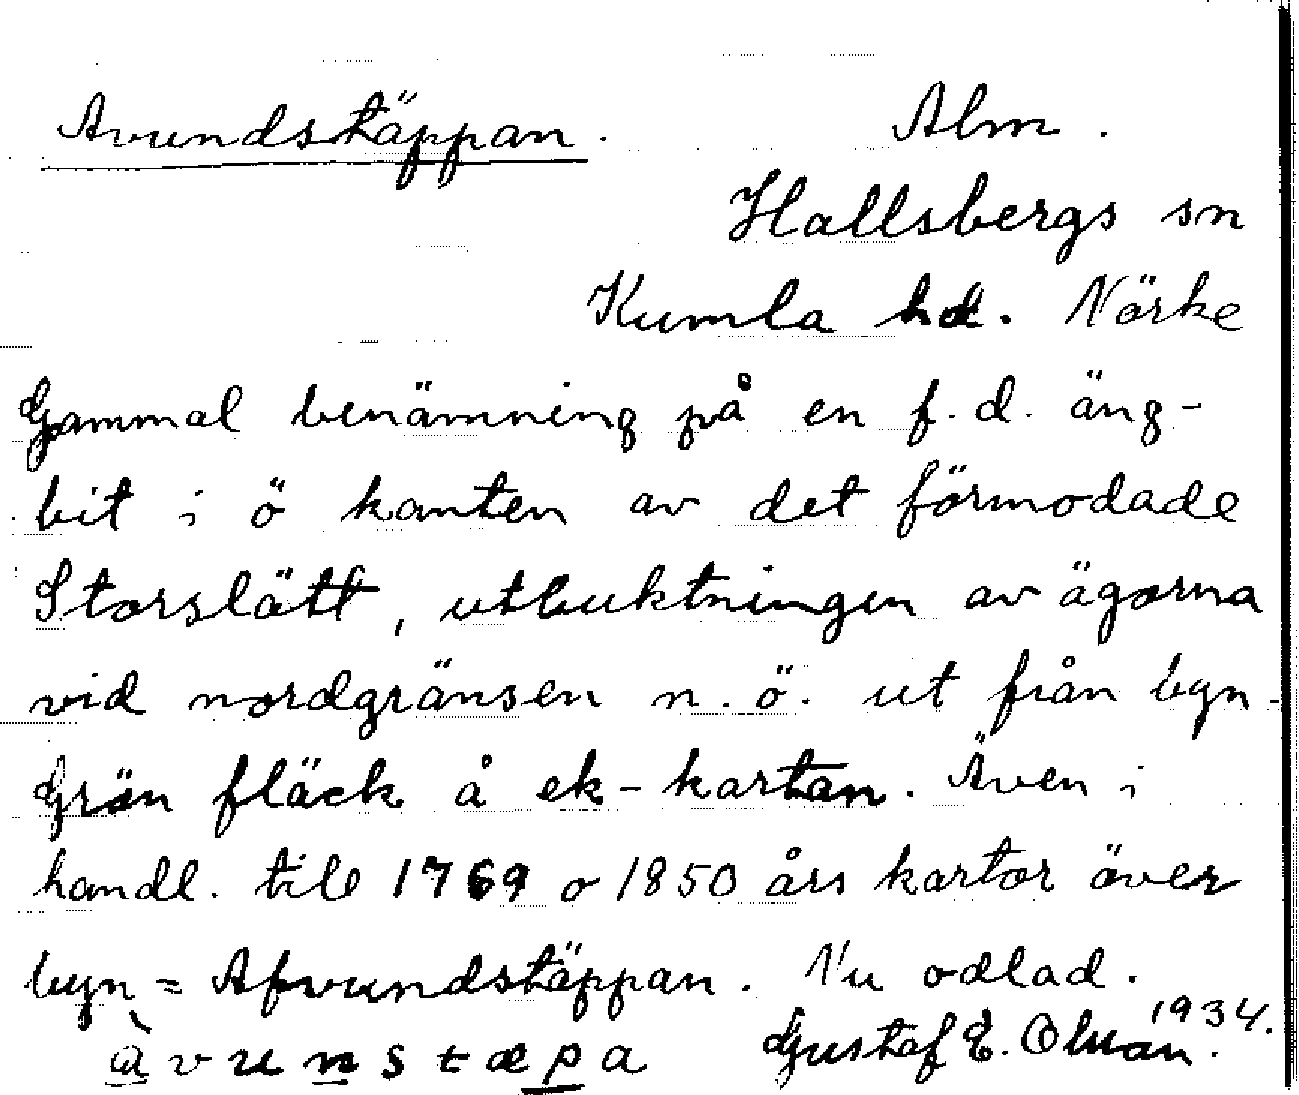 Avundstäppan. Alm.
Hallsbergs sn
Kumla hd. Närke
Gammal benämning på en f.d. äng-
bit i ö kanten av det förmodade
Storslätt, utbuktningen av ägorna
vid nordgränsen n.ö. ut från byn.
Grön fläck å ek-kartan. Även i
handl. till 1769 o 1850 års kartor över
byn = Afvundstäppan. Nu odlad.
àvunstæpa Gustaf E. Olsson. 1934.